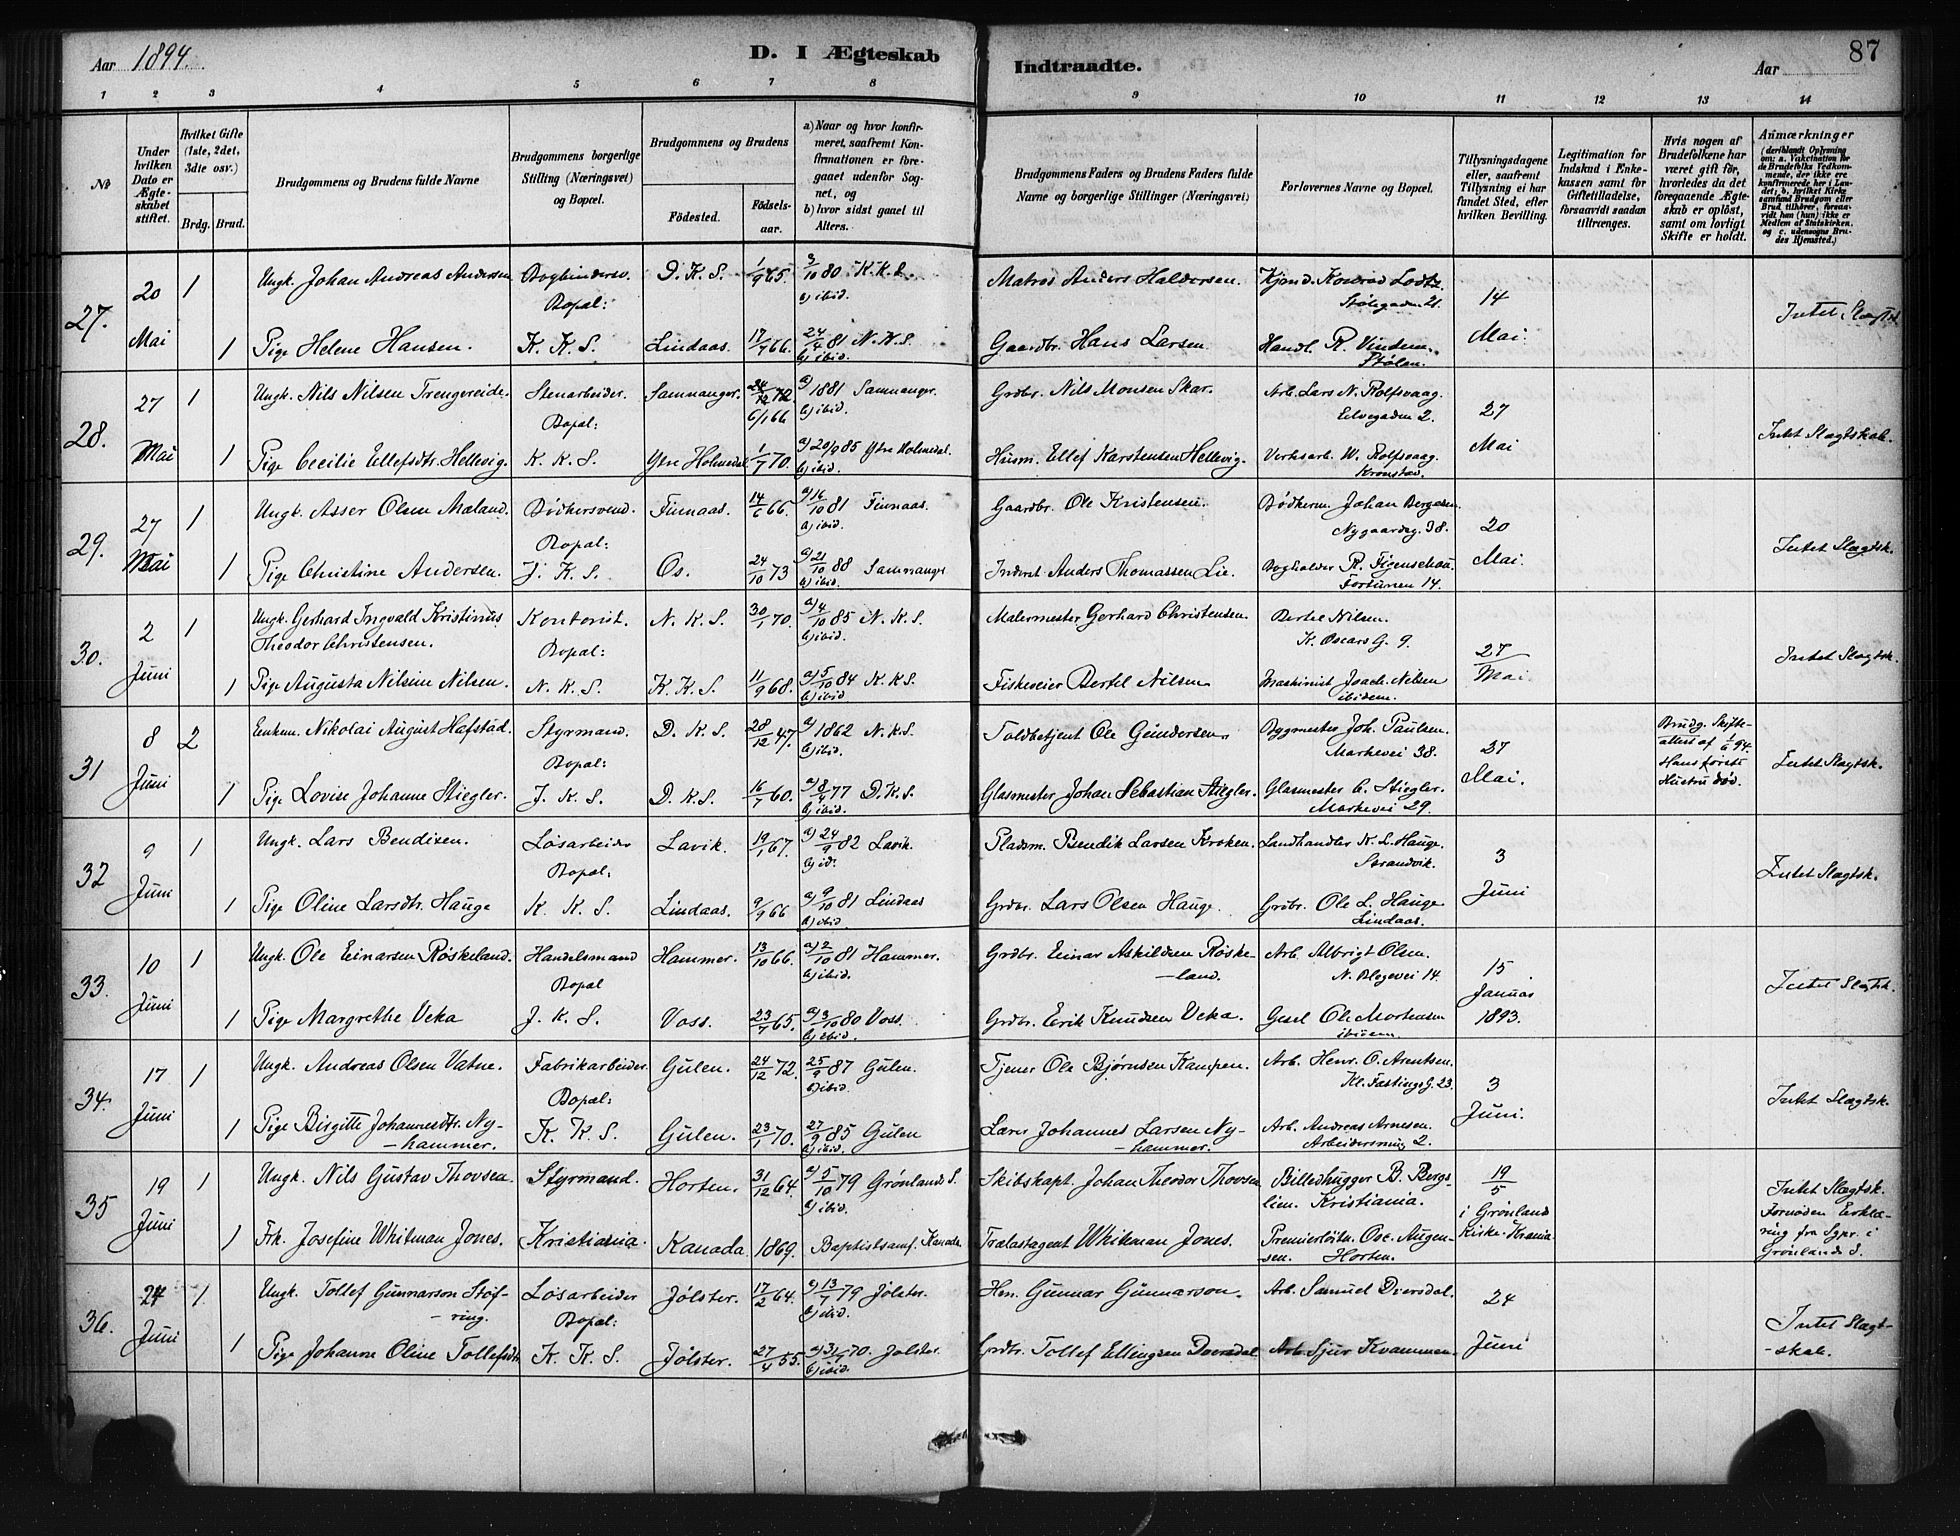 Aar 1894.
D. I Ægteskab
Indtraadte.
Aar
87
1 2 3 4 5 6 7 8 9 10 11 12 13 14
No
Under hvilken Dato er Ægteskabet stiftet.
Hvilket Gifte (1ste, 2det, 3dte osv.)
Brdg. Brud.
Brudgommens og Brudens fulde Navne
Brudgommens borgerlige Stilling (Næringsvei) og Bopæl.
Brudgommens og Brudens
Födested.
Födselsaar.
a) Naar og hvor konfirmeret, saafremt Konfirmationen er foregaaet udenfor Sognet, og
b) hvor sidst gaaet til Alters.
Brudgommens Faders og Brudens Faders fulde Navne og borgerlige Stillinger (Næringsvei)
Forlovernes Navne og Bopæl.
Tillysningsdagene eller, saafremt Tillysning ei har fundet Sted, efter hvilken Bevilling.
Legitimation for Indskud i Enkekassen samt for Giftetilladelse, forsaavidt saadan tiltrænges.
Hvis nogen af Brudefolkene har været gift för, hvorledes da det foregaaende Ægteskab er oplöst, samt om lovligt Skifte er holdt.
Anmærkninger (deriblandt Oplysning om: a. Vakcination for de Brudefolks Vedkommende, der ikke ere konfirmerede her i Landet; b. hvilket Kirkesamfund Brudgom eller Brud tilhörer, forsaavidt han (hun) ikke er Medlem af Statskirken, og c. udensogns Brudes Hjemsted.)
27. 20 Mai 1 Ungk. Johan Andreas Andersen Bogbindersv. D. K. S. 1/9 65. 3/10 80. K. K. S. b) ibid. Matros Anders Haldorsen. Kjøm̄d. Konrad Lodtz Stølegaden 21. 14 Mai. Intet Slagtsk.
Bopæl:
1 Pige Helene Hansen. K. K. S. Lindaas. 17/7 66. 24/4 81 N. K. S. b) ibid. Gaardbr. Hans Larsen Handl. R. Vindenes Stølen.
28. 27 Mai 1 Ungk. Nils Nilsen Trengereide. Stenarbeider. Samnanger. 24/12 72 6/1 66 a) 1881 Samnanger. b) ibid. Grdbr. Nils Monsen Skar. Arb. Lars N. Rolfsvaag. Elvegaden 2. 27 Mai Intet Slagtskab.
Bopæl:
1 Pige Cecilie Ellefsdtr. Hellevig. K. K. S. Ytre Holmedal. 1/7 70. a) 20/9 85 Ytre Holmedal. b) ibid. Husm. Ellef Karstensen Hellevig. Verksarb. W. Rolfsvaag. Kronstad.
29. 27 Mai 1 Ungk. Asser Olsen Mæland. Bødkersvend. Finnaas. 14/6 66. a) 16/10 81 Finnaas. b) ibid. Gaardbr. Ole Kristensen. Bødkerm. Johan Bergesen. Nygaardsg. 38. 20 Mai. Intet Slægtsk.
Bopæl:
1 Pige Christine Andersen. J. K. S. Os. 24/10 73 a) 21/10 88 Samnanger b) ibid. Inderst Anders Thomassen Lie. Bogholder R. Figenschau. Fortunen 14.
30. 2 Juni 1 Ungk. Gerhard Ingvald Kristinus Theodor Christensen. Kontorist. N. K. S. 30/1 70. a) 4/10 85 N. K. S. b) ibid. Malermester Gerhard Christensen. Bertel Nilsen. K. Oscars G. 9. 27 Mai Intet Slagtsk.
Bopæl:
1 Pige Augusta Nilsine Nilsen. N. K. S. K. K. S. 11/9 68. a) 5/10 84 K. K. S. b) ibid Fiskeveier Bertel Nilsen Maskinist Joach. Nilsen ibidem.
31 8 Juni 2 Enkem. Nikolai August Hafstad. Styrmand. D. K. S. 28/12 47. a) 1862 N. K. S. b) ibid. Toldbetjent Ole Gundersen. Bygmester Joh. Paulsen. Markevei 38. 27 Mai. Brudg. Skifteattest af 1/6 94. Hans første Hustru død. Intet Slagtsk.
Bopæl:
1 Pige Lovise Johanne Stiegler. J. K. S. D. K. S. 16/7 60. a) 8/4 77 D. K. S. b) ibid. Glasmester Johan Sebastian Stiegler. Glasmester C. Stiegler. Markevei 29.
32 9 Juni 1 Ungk. Lars Bendixen. Løsarbeider Lavik. 19/1 67. a) 24/9 82 Lavik. b) id. Pladsm. Bendik Larsen Kroken. Landhandler K. L. Hauge. Strandvik. 3 Juni Intet Slagtsk.
Bopæl:
1 Pige Oline Larsdtr. Hauge K. K. S. Lindaas. 9/9 66 a) 9/10 81 Lindaas b) ibid. Grdbr. Lars Olsen Hauge. Grdbr. Ole L. Hauge Lindaas.
33. 10 Juni 1 Ungk. Ole Einarsen Røskeland. Handelsmand Hammer. 13/10 66. a) 2/10 81 Hammer. b) ibid. Grdbr. Einar Askildsen Røskeland. Arb. Albrigt Olsen. N. Blegevei 14. 15 Januar 1893. Intet Slagtsk.
Bopæl
1 Pige Margrethe Veka J. K. S. Voss. 23/7 65. a) 3/10 80 Voss. b) ibid. Grdbr. Erik Knudsen Veka. Gesel Ole Mortensen ibidem
34. 17 Juni 1 Ungk. Andreas Olsen Vatne. Fabrikarbeider Gulen. 24/12 72. 25/9 87 Gulen. b) ibid. Tjener Ole Bjørnsen Kampen. Arb. Henr. O. Arentsen. Kl. Fastings G. 23. 3 Juni. Intet Slægtsk.
Bopæl:
1 Pige Birgitte Johannesdtr. Nyhammer. K. K. S. Gulen. 23/1 70. 27/9 85 Gulen b) ibid. Lærer Johannes Larsen Nyhammer. Arb. Andreas Arnesen. Arbeidersning 2.
35 19 Juni 1 Ungk. Nils Gustav Thovsen. Styrmand. Horten. 31/12 64. a) 5/10 79 Grønlands S. b) ibid. Skibskapt. Johan Theodor Thovsen Billedhugger B. Bergslien. Kristiania. 19/5 i Grønland Kirke. Krania Intet Slagtsk. Fornøden Erklæring fra Sgpr. i Grønlands S.
1 Frk. Josefine Whitman Jones. Kristiania. Kanada. 1869. Baptistsamf. Kanada Trælastagent Whitman Jones. Premierløitn. Osc. Augensen. Horten.
36. 24 Juni 1. Ungk. Tollef Gunnarson Støfring. Løsarbeider Jølster. 17/2 64. a) 13/7 79 Jølster. b) ibid. Hen. Gunnar Gunnarson. Arb. Samuel Dversdal. 24 Juni Intet Slagtskab.
Bopæl:
1 Pige Johanne Oline Tollefsdtr. K. K. S. Jølster. 27/4 55. a) 31/7 70. Jølster. b) ibid. Grdbr. Tollef Ellingsen Dversdal Arb. Sjur Kvammen.